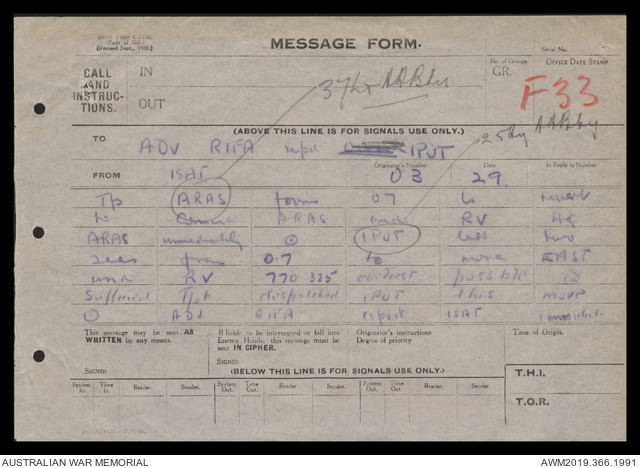 (Revised Sept., 1936.)
MESSAGE FORM.
Serial No.
CALL AND INSTRUC- TIONS.
IN
OUT
No. of Groups GR.
OFFICE DATE STAMP
37 Lt AA Bty
F33
(ABOVE THIS LINE IS FOR SIGNALS USE ONLY.)
25 Hy AA Bty
TO ADV RIFA repd IPUT
FROM ISAT
Originator's Number 03
Date 29
In Reply to Number
Tp ARAS from 07 to revert
to Comd ARAS and RV
ARAS immediately O IPUT less two
secs from 07 to move EAST
and RV 770 325 earliest possible O
Sufficient Tpt despatched IPUT this move
O ADV RIFA report ISAT immediate
This message may be sent AS WRITTEN by any means.
If liable to be intercepted or fall into Enemy Hands, this message must be sent IN CIPHER.
Originator's instructions Degree of priority
Time of Origin.
SIGNED
SIGNED
(BELOW THIS LINE IS FOR SIGNALS USE ONLY.)
T.H.I.
System In.
Time In.
Reader.
Sender.
System Out.
Time Out.
Reader.
Sender.
System Out.
Time Out.
Reader.
Sender.
T.O.R.
AUSTRALIAN WAR MEMORIAL
AWM2019.366.1991